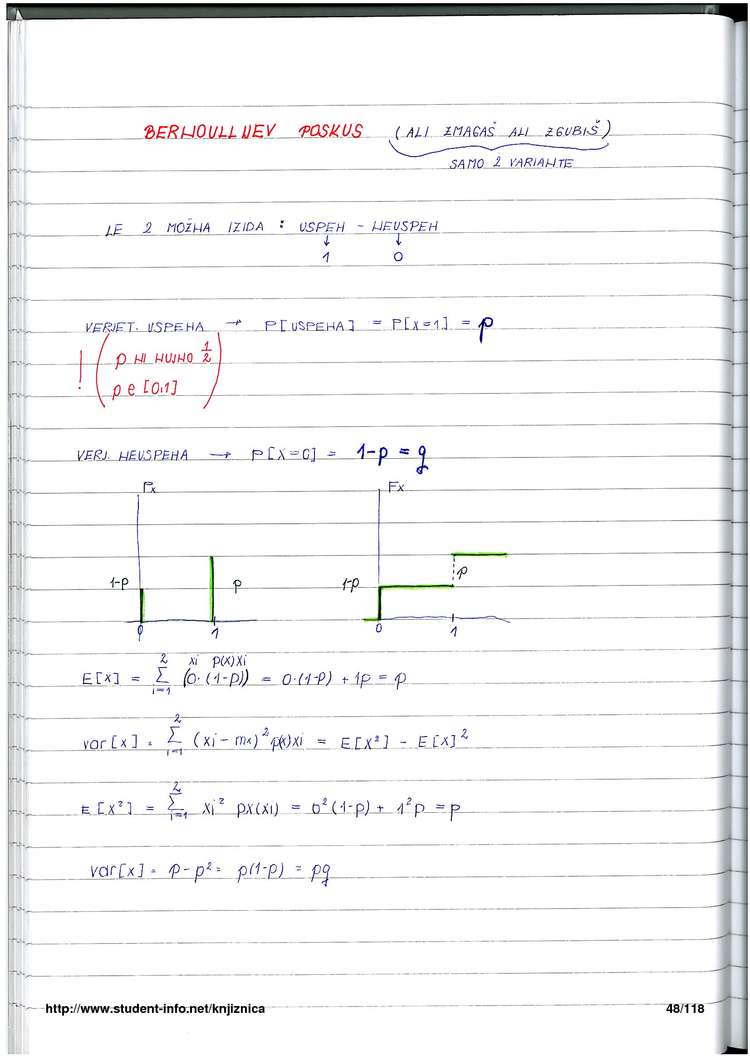 BERNOULLIJEV POSKUS (ALI ZMAGAŠ ALI ZGUBIŠ)
SAMO 2 VARIANTE
LE 2 MOŽNA IZIDA : USPEH - NEUSPEH
↓ ↓
1 0
VERJET. USPEHA → P[USPEHA] = P[X=1] = p
! (p NI NUJNO 1/2
p ∈ [0,1])
VERJ. NEUSPEHA → P[X=0] = 1-p = q
Px Fx
1-p p 1-p p
0 1 0 1
xi p(x)xi
E[x] = 2 Σ i=1 (0·(1-p)) = 0·(1-p) + 1p = p
var[x] = 2 Σ i=1 (xi - mx)² p(x)xi = E[X²] - E[X]²
E[X²] = 2 Σ i=1 xi² px(xi) = 0²(1-p) + 1²p = p
var[x] = p - p² = p(1-p) = pq
http://www.student-info.net/knjiznica 48/118